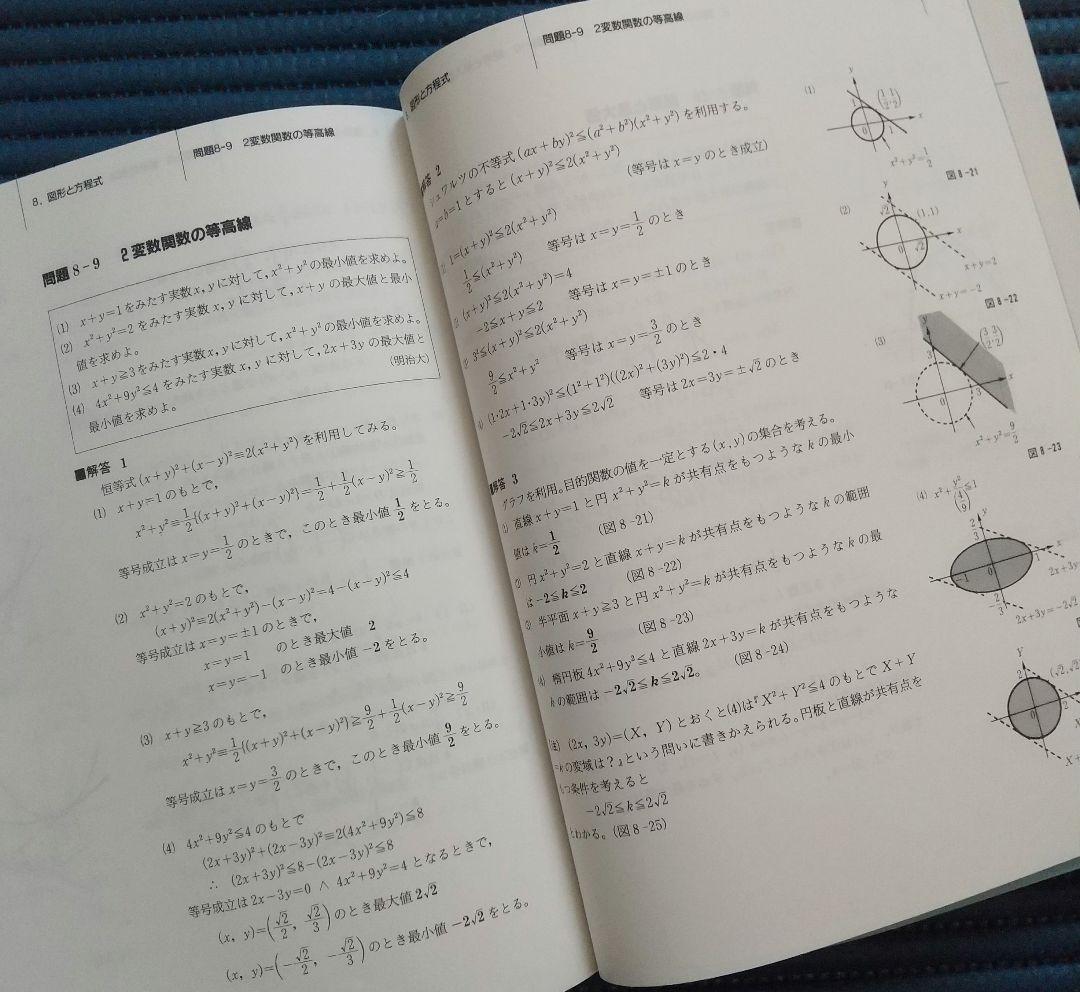 8. 図形と方程式
問題8-9 2変数関数の等高線
問題8-9 2変数関数の等高線
(1) x+y=1をみたす実数x, yに対して, x²+y²の最小値を求めよ。
(2) x²+y²=2をみたす実数x, yに対して, x+yの最大値と最小
値を求めよ。
(3) x+y≧3をみたす実数x, yに対して, x²+y²の最小値を求めよ。
(4) 4x²+9y²≦4をみたす実数x, yに対して, 2x+3yの最大値と
最小値を求めよ。 (明治大)
■解答 1
恒等式(x+y)²+(x−y)²≡2(x²+y²)を利用してみる。
(1) x+y=1のもとで,
x²+y²≡1/2{(x+y)²+(x−y)²}=1/2+1/2(x−y)²≧1/2
等号成立はx=y=1/2のときで, このとき最小値1/2をとる。
(2) x²+y²=2のもとで,
(x+y)²≡2(x²+y²)−(x−y)²=4−(x−y)²≦4
等号成立はx=y=±1のときで,
x=y=1 のとき最大値 2
x=y=−1 のとき最小値 −2をとる。
(3) x+y≧3のもとで,
x²+y²≡1/2{(x+y)²+(x−y)²}≧9/2+1/2(x−y)²≧9/2
等号成立はx=y=3/2のときで, このとき最小値9/2をとる。
(4) 4x²+9y²≦4のもとで
(2x+3y)²+(2x−3y)²≡2(4x²+9y²)≦8
∴ (2x+3y)²≦8−(2x−3y)²≦8
等号成立は2x−3y=0 ∧ 4x²+9y²=4となるときで,
(x, y)=(√2/2, √2/3)のとき最大値2√2
(x, y)=(−√2/2, −√2/3)のとき最小値−2√2をとる。
図形と方程式
問題8-9 2変数関数の等高線
解答 2
シュワルツの不等式(ax+by)²≦(a²+b²)(x²+y²)を利用する。
a=b=1とすると(x+y)²≦2(x²+y²) (等号はx=yのとき成立)
1=(x+y)²≦2(x²+y²)
1/2≦(x²+y²) 等号はx=y=1/2のとき
(x+y)²≦2(x²+y²)=4
−2≦x+y≦2 等号はx=y=±1のとき
3²≦(x+y)²≦2(x²+y²)
9/2≦x²+y² 等号はx=y=3/2のとき
(1·2x+1·3y)²≦(1²+1²)((2x)²+(3y)²)≦2·4
−2√2≦2x+3y≦2√2 等号は2x=3y=±√2のとき
解答 3
グラフを利用。目的関数の値を一定とする(x, y)の集合を考える。
直線x+y=1と円x²+y²=kが共有点をもつようなkの最小
値はk=1/2 (図8-21)
円x²+y²=2と直線x+y=kが共有点をもつようなkの範囲
は−2≦k≦2 (図8-22)
半平面x+y≧3と円x²+y²=kが共有点をもつようなkの最
小値はk=9/2 (図8-23)
(4) 楕円板4x²+9y²≦4と直線2x+3y=kが共有点をもつような
kの範囲は−2√2≦k≦2√2。 (図8-24)
(2x, 3y)=(X, Y)とおくと(4)は『X²+Y²≦4のもとでX+Y
=kの変域は?』という問いに書きかえられる。円板と直線が共有点を
もつ条件を考えると
−2√2≦k≦2√2
とわかる。(図8-25)
(1)
y
1
(1/2, 1/2)
0
1
x
x²+y²=1/2
図8-21
(2)
y
√2
(1, 1)
0
√2
x
x+y=2
x+y=−2
図8-22
(3)
y
3
(3/2, 3/2)
0
3
x
x²+y²=9/2
図8-23
(4) x²+y²/(4/9)≦1
y
2/3
−1
0
x
−2/3
2x+3y
2x+3y=−2√2
Y
(√2, √2)
0
X
X+